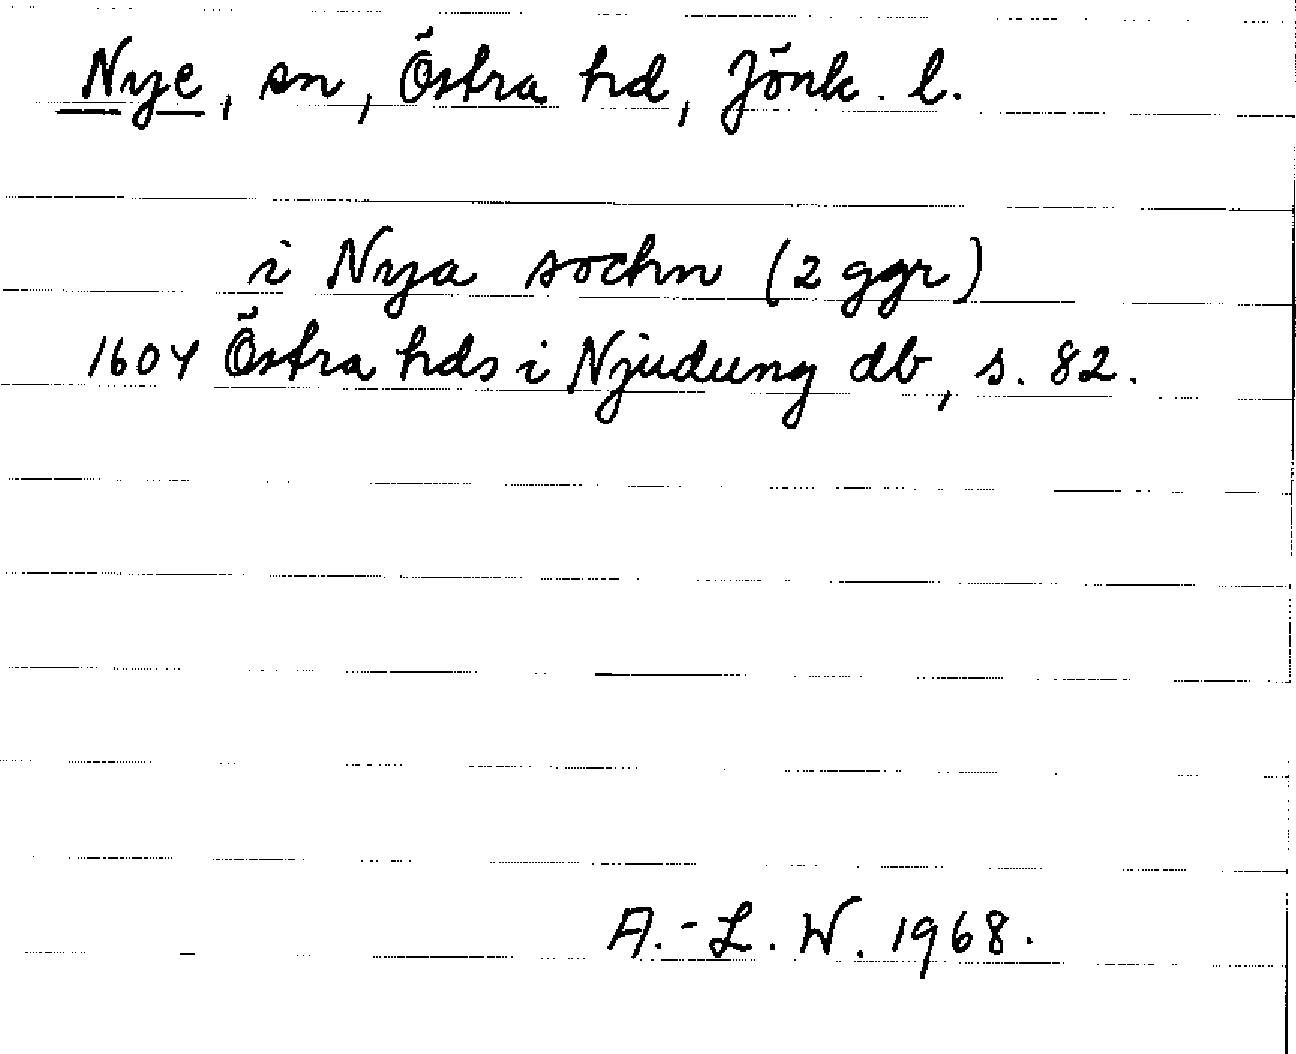 Nye, sn, Östra hd, Jönk. l.
i Nya sochn (2 ggr)
1604 Östra hds i Njudung db, s. 82.
A.-L. W. 1968.